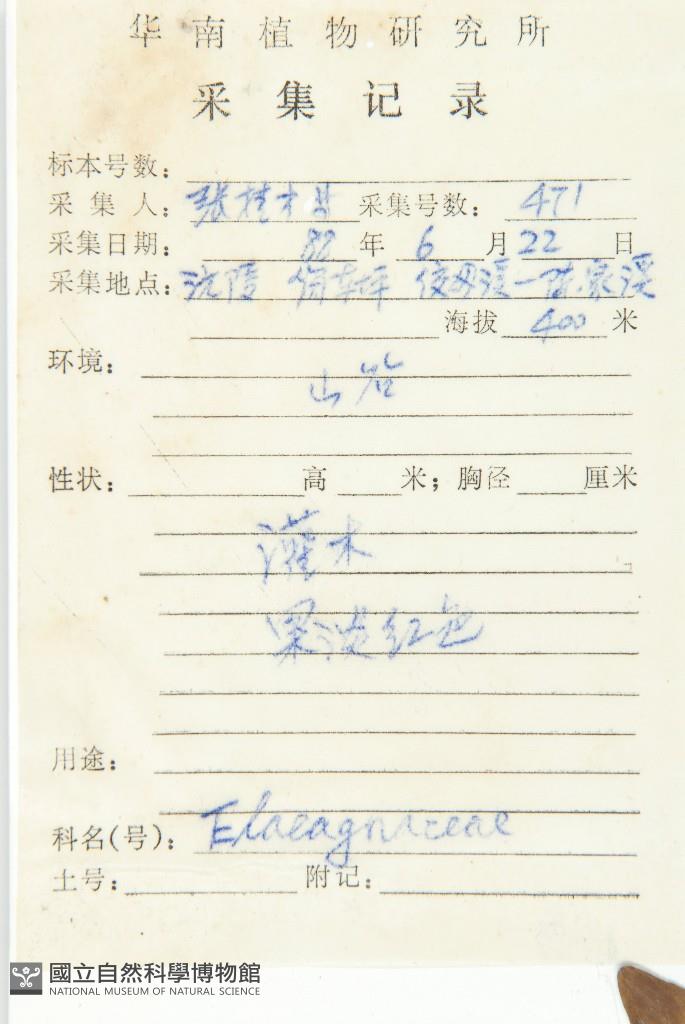 华南植物研究所
采集记录
标本号数：
采集人：张桂才 采集号数：471
采集日期： 年 6 月 22 日
采集地点：沅陵 坪 溪—陈家溪
海拔 400 米
环境：
山谷
性状： 高 米；胸径 厘米
灌木
果淡红色
用途：
科名(号)：Elaeagnaceae
土号： 附记：
國立自然科學博物館
NATIONAL MUSEUM OF NATURAL SCIENCE